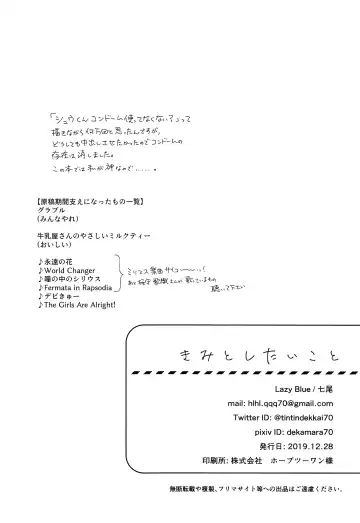 「シュウくんコンドーム使ってなくない？」って
描きながら何万回と思ったんですが、
どうしても中出しさせたかったのでコンドームの
存在は消しました。
この本では私が神なので……。
【原稿期間支えになったもの一覧】
グラブル
(みんなやれ)
牛乳屋さんのやさしいミルクティー
(おいしい)
♪永遠の花
♪World Changer
♪瞳の中のシリウス
♪Fermata in Rapsodia
♪デビきゅー
♪The Girls Are Alright!
ミリマス 楽曲 サイコ〜〜〜ッ!
聴いて下さい
きみとしたいこと
Lazy Blue / 七尾
mail: hlhl.qqq70@gmail.com
Twitter ID: @tintindekkai70
pixiv ID: dekamara70
発行日: 2019.12.28
印刷所: 株式会社　ホープツーワン様
無断転載や複製、フリマサイト等への出品はご遠慮ください。